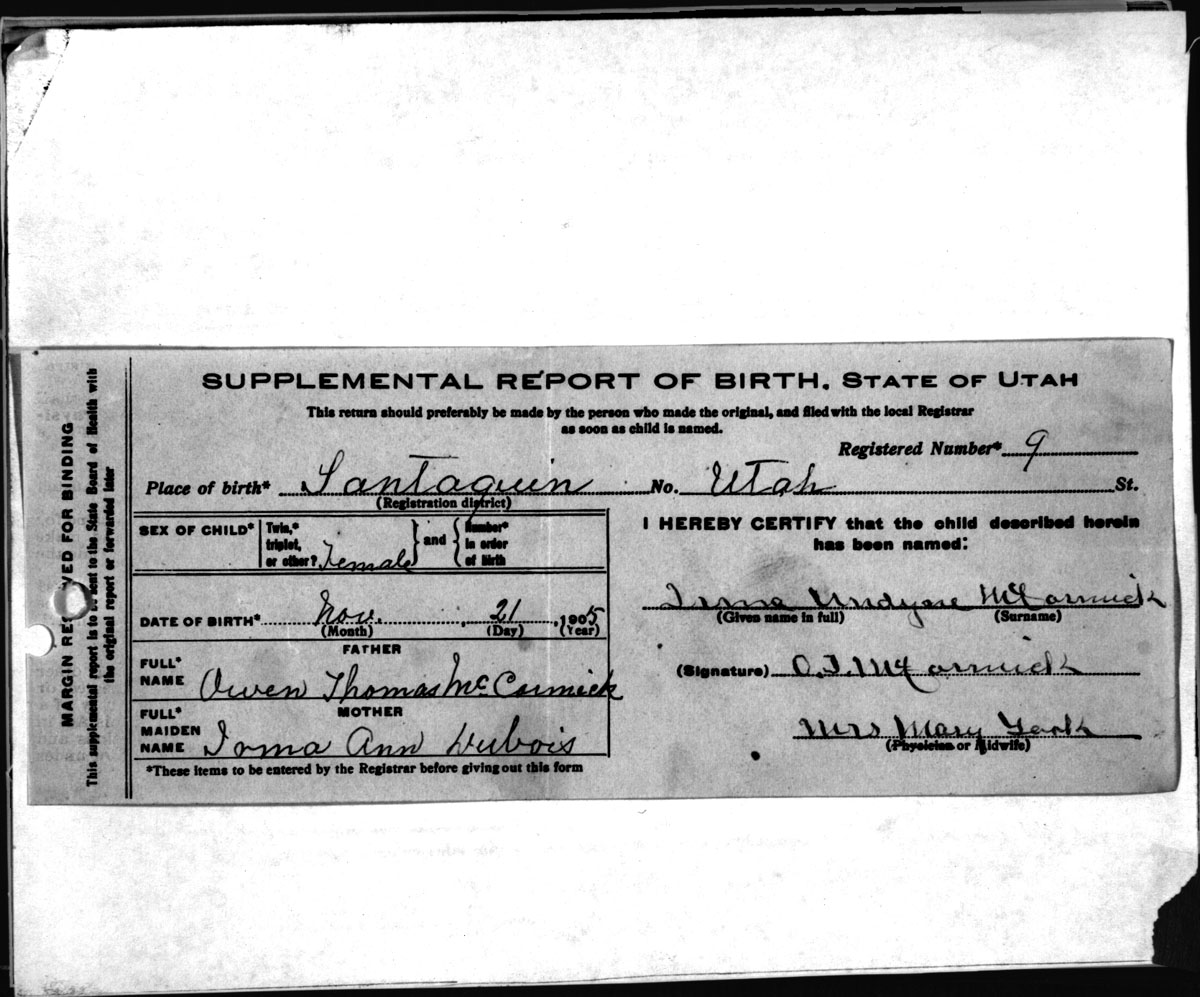 SUPPLEMENTAL REPORT OF BIRTH. STATE OF UTAH
This return should preferably be made by the person who made the original, and filed with the local Registrar
as soon as child is named.
Registered Number* 9
Place of birth* Santaquin No. Utah St.
(Registration district)
SEX OF CHILD* Twin,* triplet, or other? Female and Number* in order of birth
DATE OF BIRTH* Nov. 21, 1905
(Month) (Day) (Year)
FATHER
FULL* NAME Owen Thomas McCormick
MOTHER
FULL* MAIDEN NAME Ann Dubois
*These items to be entered by the Registrar before giving out this form
I HEREBY CERTIFY that the child described herein
has been named:
McCormick
(Given name in full) (Surname)
(Signature) O.T. McCormick
Mrs Mary
(Physician or Midwife)
MARGIN RESERVED FOR BINDING
This supplemental report is to be sent to the State Board of Health with
the original report or forwarded later